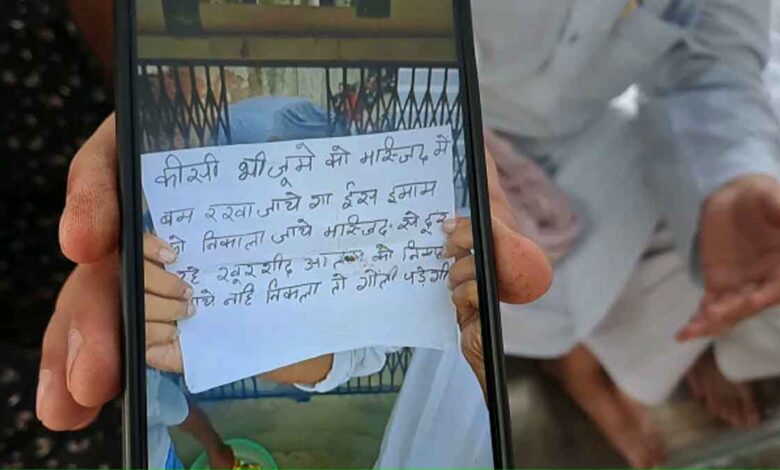 कीसी भी जूमे को मास्जिद मे
बम रखा जाये गा ईस इमाम
को निकाला जाये मास्जिद से दूर
रहे खूरशीद आलम को निकाला
जाये नहि निकला तो गोली पड़ेगी